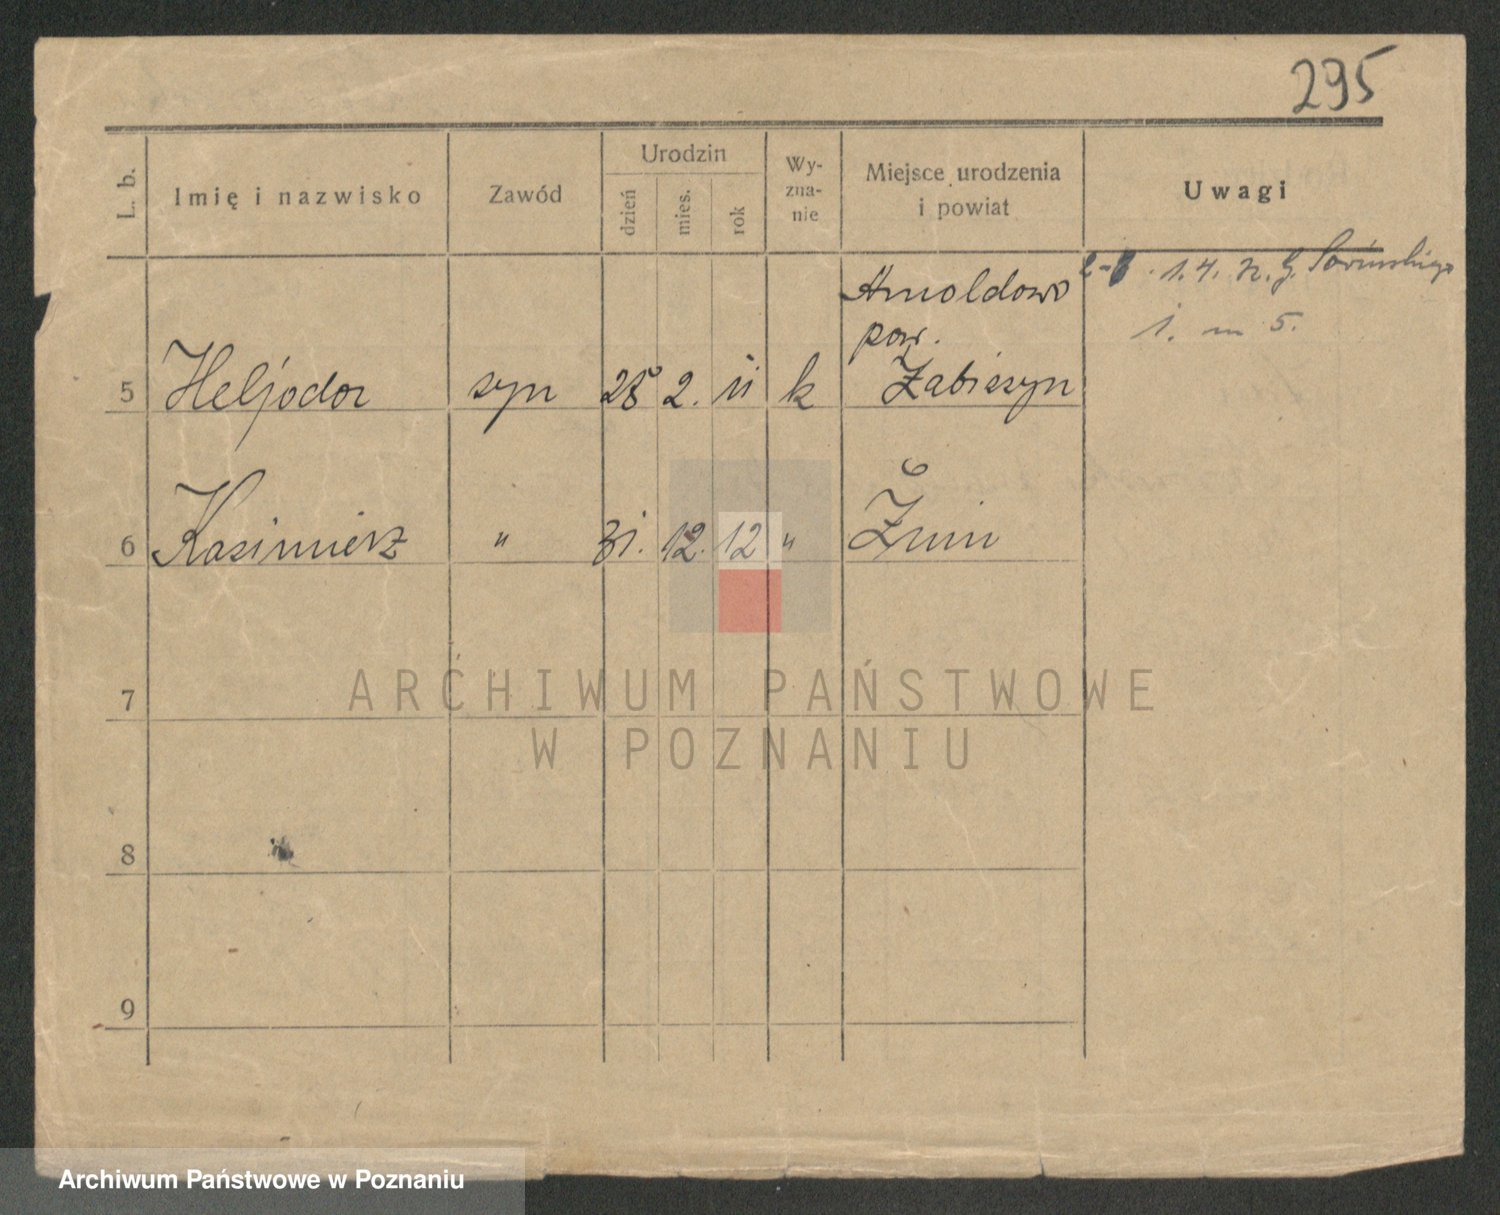 295
L. b.
Imię i nazwisko
Zawód
Urodzin
dzień
mies.
rok
Wy-
zna-
nie
Miejsce urodzenia
i powiat
Uwagi
2-6. 1.4. n. G.
1. m 5.
Arnoldowo
pow.
5 Heljodor syn 28 2. 11 k Żabiczyn
6 Kasimierz " 31. 12. 12 " Żnin
7
8
9
ARCHIWUM PAŃSTWOWE
W POZNANIU
Archiwum Państwowe w Poznaniu